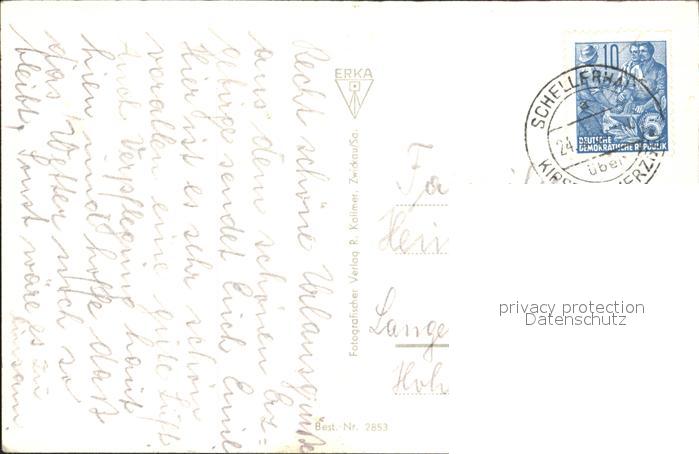 Recht schöne Urlaubsgrüße
aus dem schönen Erz=
gebirge sendet Euch
Hier ist es sehr schön
vor allen eine gute Luft
und Verpflegung haut
hin und hoffe daß
das Wetter noch so
bleibt, sonst wäre es zu
einsam
ERKA
Fotografischer Verlag R. Kallmer, Zwickau/Sa.
Best.-Nr. 2853
10
5
DEUTSCHE
DEMOKRATISCHE REPUBLIK
SCHELLERHA
24.
über
KI
ERZ
Fa
Hein
Lange
Hoh
privacy protection
Datenschutz